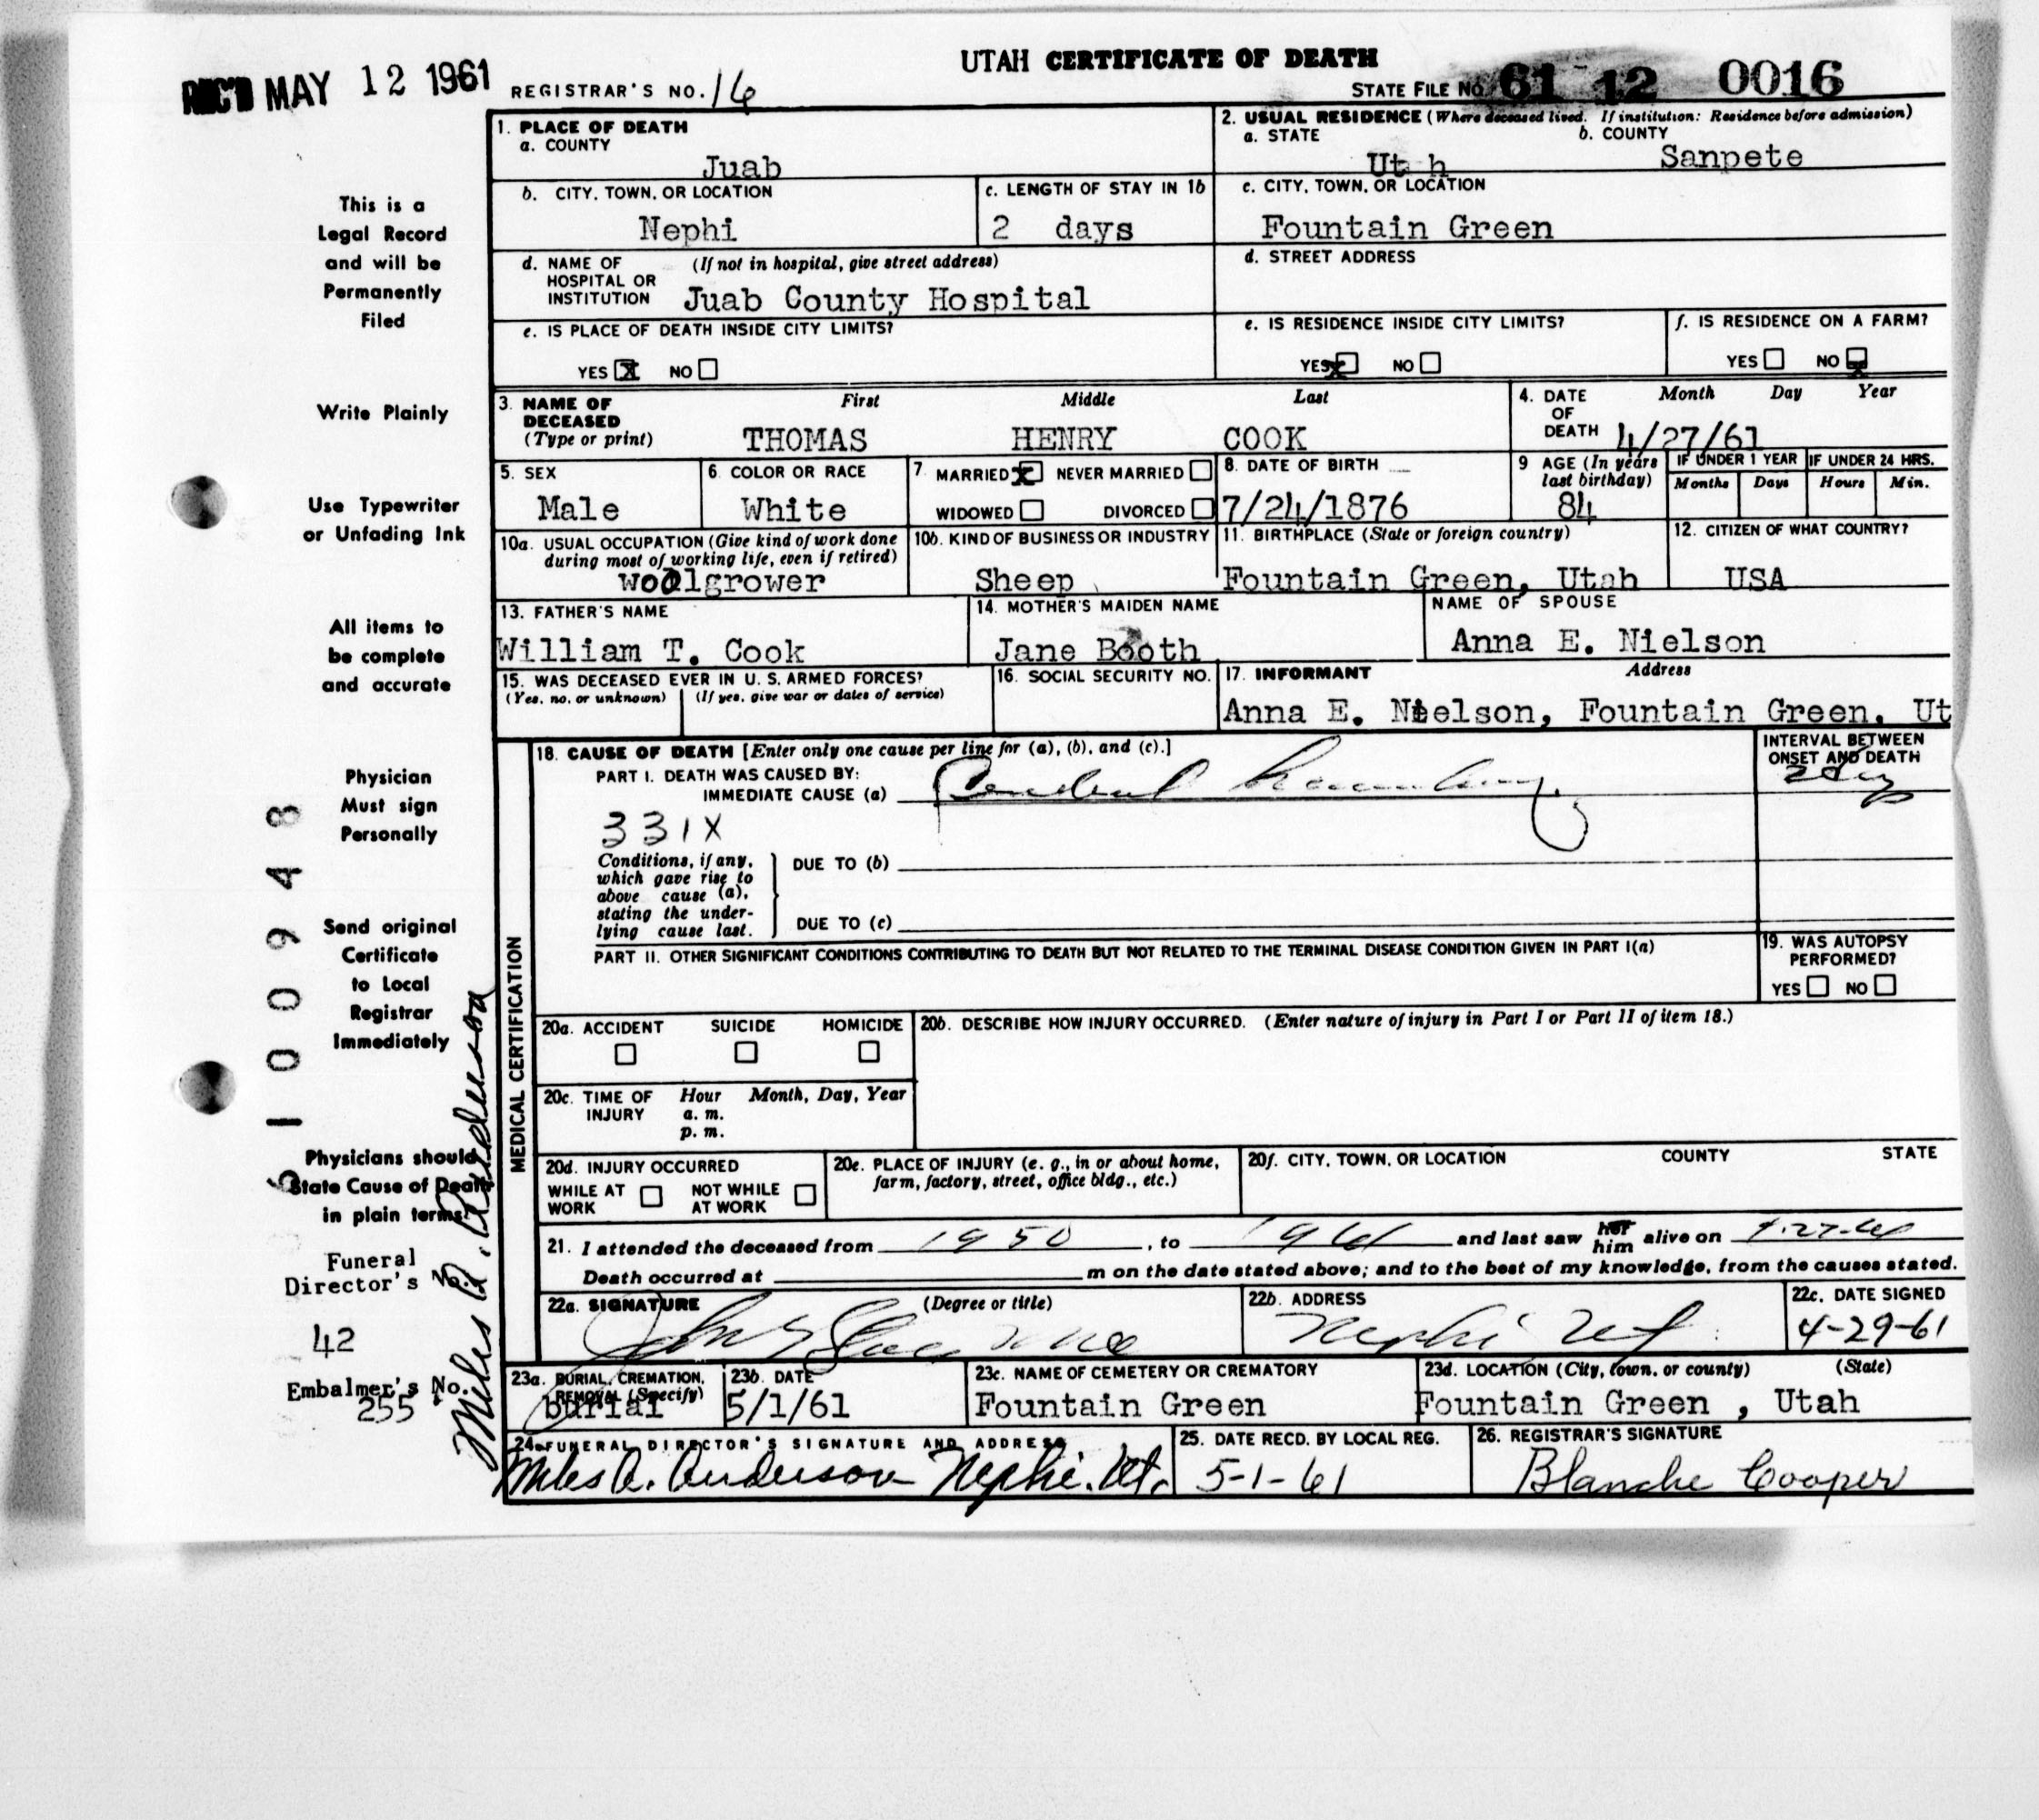 REC'D MAY 12 1961
UTAH CERTIFICATE OF DEATH
REGISTRAR'S NO. 16
STATE FILE NO. 61 12 0016
1. PLACE OF DEATH
a. COUNTY
Juab
2. USUAL RESIDENCE (Where deceased lived. If institution: Residence before admission)
a. STATE b. COUNTY
Ut h Sanpete
b. CITY, TOWN, OR LOCATION
Nephi
c. LENGTH OF STAY IN 1b
2 days
c. CITY, TOWN, OR LOCATION
Fountain Green
d. NAME OF (If not in hospital, give street address)
HOSPITAL OR
INSTITUTION Juab County Hospital
d. STREET ADDRESS
e. IS PLACE OF DEATH INSIDE CITY LIMITS?
YES X NO
e. IS RESIDENCE INSIDE CITY LIMITS?
YES X NO
f. IS RESIDENCE ON A FARM?
YES NO X
3. NAME OF DECEASED (Type or print)
First Middle Last
THOMAS HENRY COOK
4. DATE OF DEATH Month Day Year
4/27/61
5. SEX
Male
6. COLOR OR RACE
White
7. MARRIED X NEVER MARRIED
WIDOWED DIVORCED
8. DATE OF BIRTH
7/24/1876
9 AGE (In years last birthday)
84
IF UNDER 1 YEAR IF UNDER 24 HRS.
Months Days Hours Min.
10a. USUAL OCCUPATION (Give kind of work done
during most of working life, even if retired)
woolgrower
10b. KIND OF BUSINESS OR INDUSTRY
Sheep
11. BIRTHPLACE (State or foreign country)
Fountain Green, Utah
12. CITIZEN OF WHAT COUNTRY?
USA
13. FATHER'S NAME
William T. Cook
14. MOTHER'S MAIDEN NAME
Jane Booth
NAME OF SPOUSE
Anna E. Nielson
15. WAS DECEASED EVER IN U.S. ARMED FORCES?
(Yes, no, or unknown) (If yes, give war or dates of service)
16. SOCIAL SECURITY NO.
17. INFORMANT Address
Anna E. Nielson, Fountain Green, Ut
MEDICAL CERTIFICATION
18. CAUSE OF DEATH [Enter only one cause per line for (a), (b), and (c).]
PART I. DEATH WAS CAUSED BY:
IMMEDIATE CAUSE (a) Cerebral
INTERVAL BETWEEN
ONSET AND DEATH
331X
Conditions, if any,
which gave rise to
above cause (a),
stating the under-
lying cause last.
DUE TO (b)
DUE TO (c)
PART II. OTHER SIGNIFICANT CONDITIONS CONTRIBUTING TO DEATH BUT NOT RELATED TO THE TERMINAL DISEASE CONDITION GIVEN IN PART I(a)
19. WAS AUTOPSY
PERFORMED?
YES NO
20a. ACCIDENT SUICIDE HOMICIDE
20b. DESCRIBE HOW INJURY OCCURRED. (Enter nature of injury in Part I or Part II of item 18.)
20c. TIME OF INJURY Hour Month, Day, Year
a. m.
p. m.
20d. INJURY OCCURRED
WHILE AT WORK NOT WHILE AT WORK
20e. PLACE OF INJURY (e. g., in or about home,
farm, factory, street, office bldg., etc.)
20f. CITY, TOWN, OR LOCATION COUNTY STATE
21. I attended the deceased from 1950, to 1961 and last saw her him alive on 4-27-61
Death occurred at m on the date stated above; and to the best of my knowledge, from the causes stated.
22a. SIGNATURE (Degree or title)
22b. ADDRESS
Nephi Ut
22c. DATE SIGNED
4-29-61
23a. BURIAL, CREMATION,
REMOVAL (Specify)
burial
23b. DATE
5/1/61
23c. NAME OF CEMETERY OR CREMATORY
Fountain Green
23d. LOCATION (City, town, or county) (State)
Fountain Green , Utah
24. FUNERAL DIRECTOR'S SIGNATURE AND ADDRESS
Miles A. Anderson Nephi. Ut.
25. DATE RECD. BY LOCAL REG.
5-1-61
26. REGISTRAR'S SIGNATURE
Blanche Cooper
This is a
Legal Record
and will be
Permanently
Filed
Write Plainly
Use Typewriter
or Unfading Ink
All items to
be complete
and accurate
Physician
Must sign
Personally
Send original
Certificate
to Local
Registrar
Immediately
Physicians should
State Cause of Death
in plain terms.
Funeral
Director's No.
42
Embalmer's No.
255
Miles A. Anderson